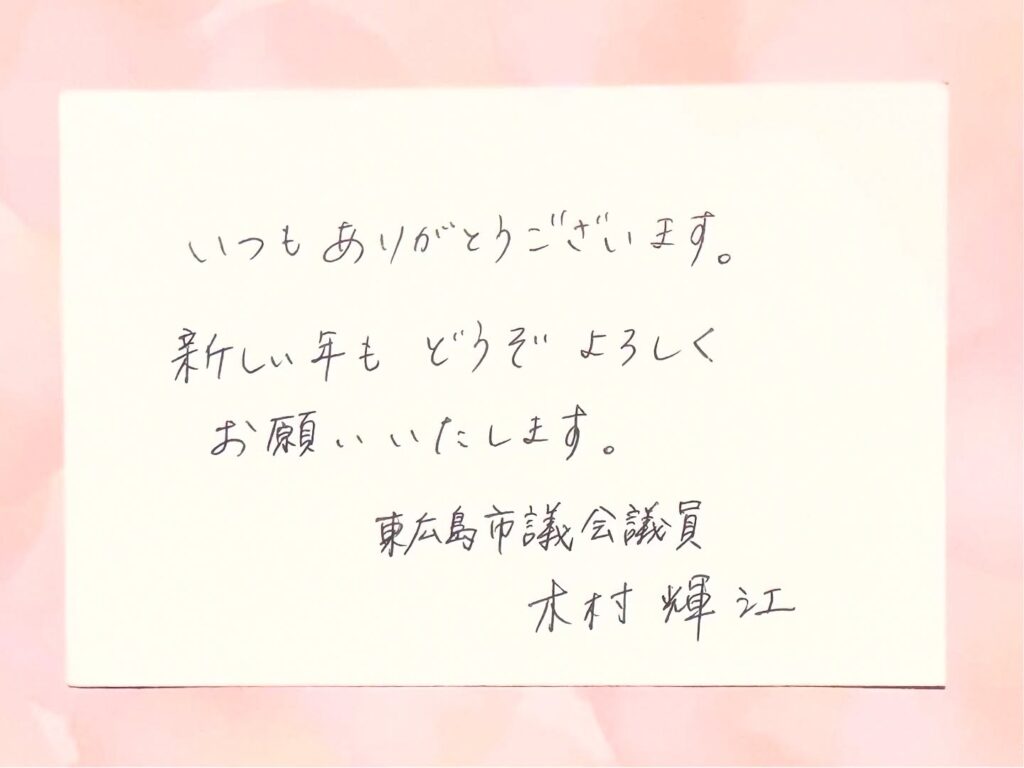 いつもありがとうございます。
新しい年も どうぞ よろしく
お願いいたします。
東広島市議会議員
木村 輝江